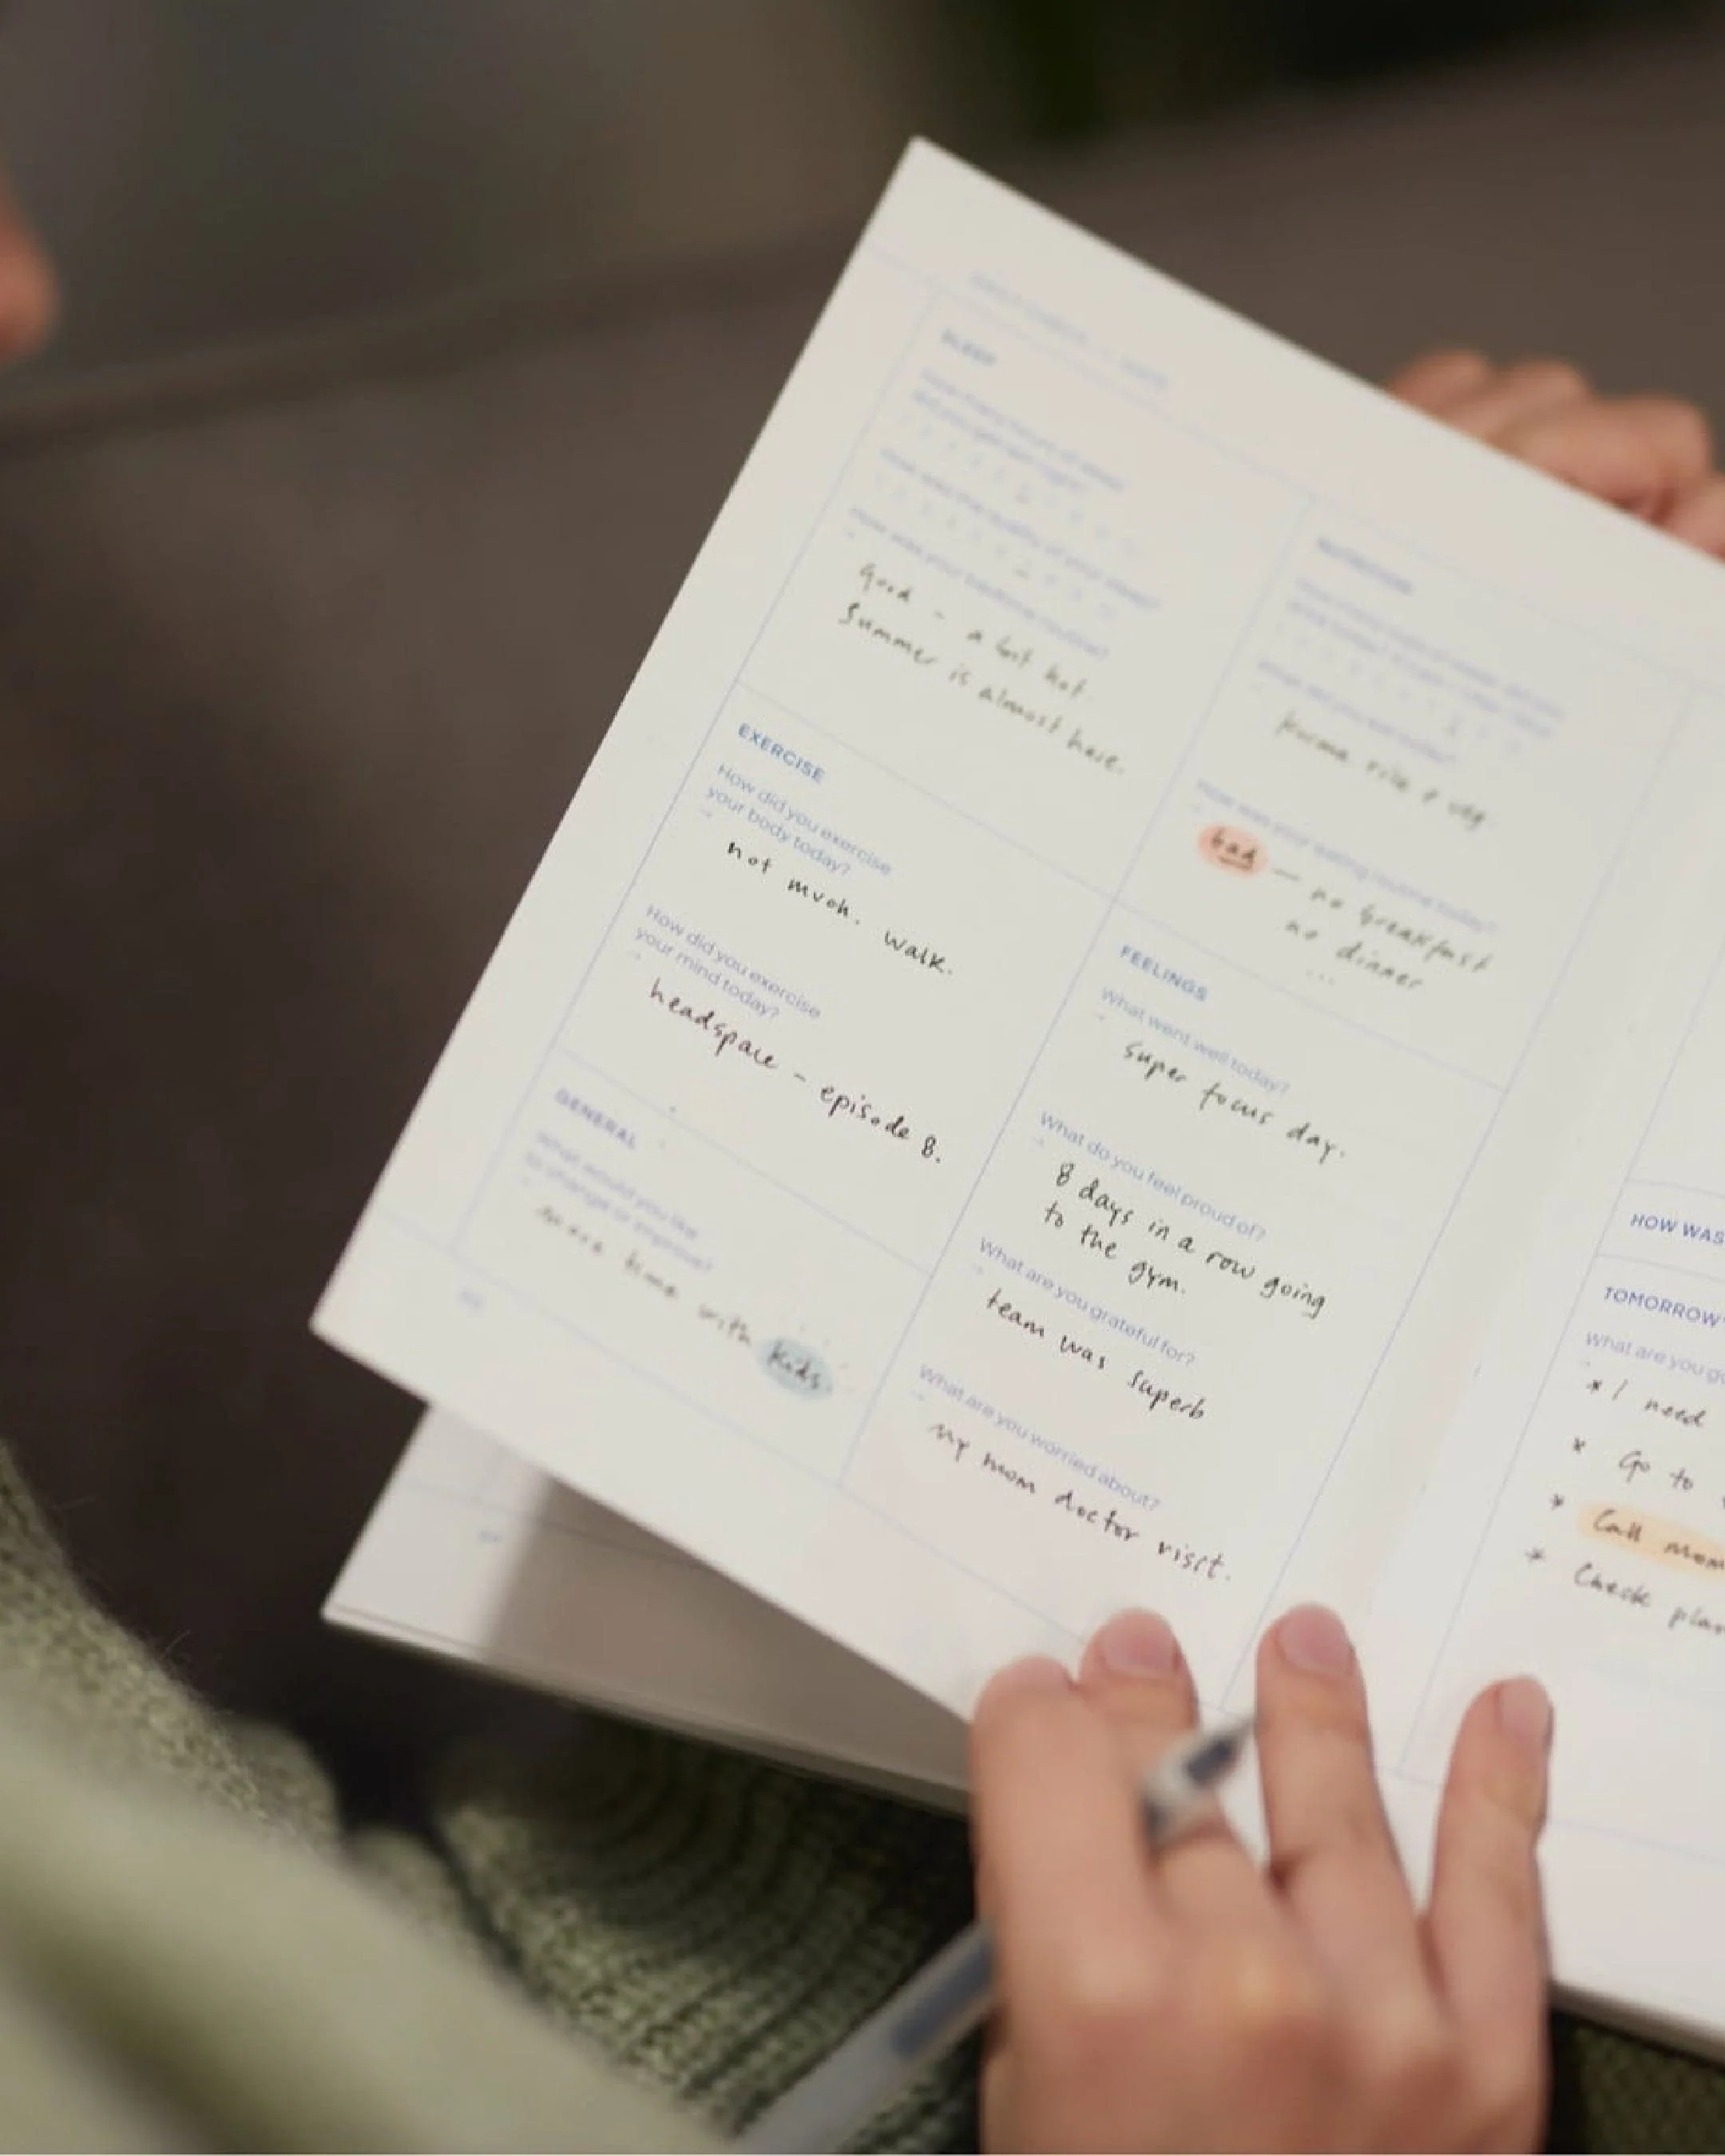 SLEEP
How many hours of sleep
did you get last night?
How was the quality of your sleep?
How was your bedtime routine?
Good - a bit hot.
Summer is almost here.
EXERCISE
How did you exercise
your body today?
not much. walk.
How did you exercise
your mind today?
headspace - episode 8.
GENERAL
What would you like
to change or improve?
more time with kids
NUTRITION
What did you eat today?
rice + veg.
How was your eating routine today?
bad — no breakfast
no dinner
...
FEELINGS
What went well today?
super focus day.
What do you feel proud of?
8 days in a row going
to the gym.
What are you grateful for?
team was superb
What are you worried about?
my mom doctor visit.
HOW WAS
TOMORROW
What are you
* I need
* Go to
* Call mom
* Check